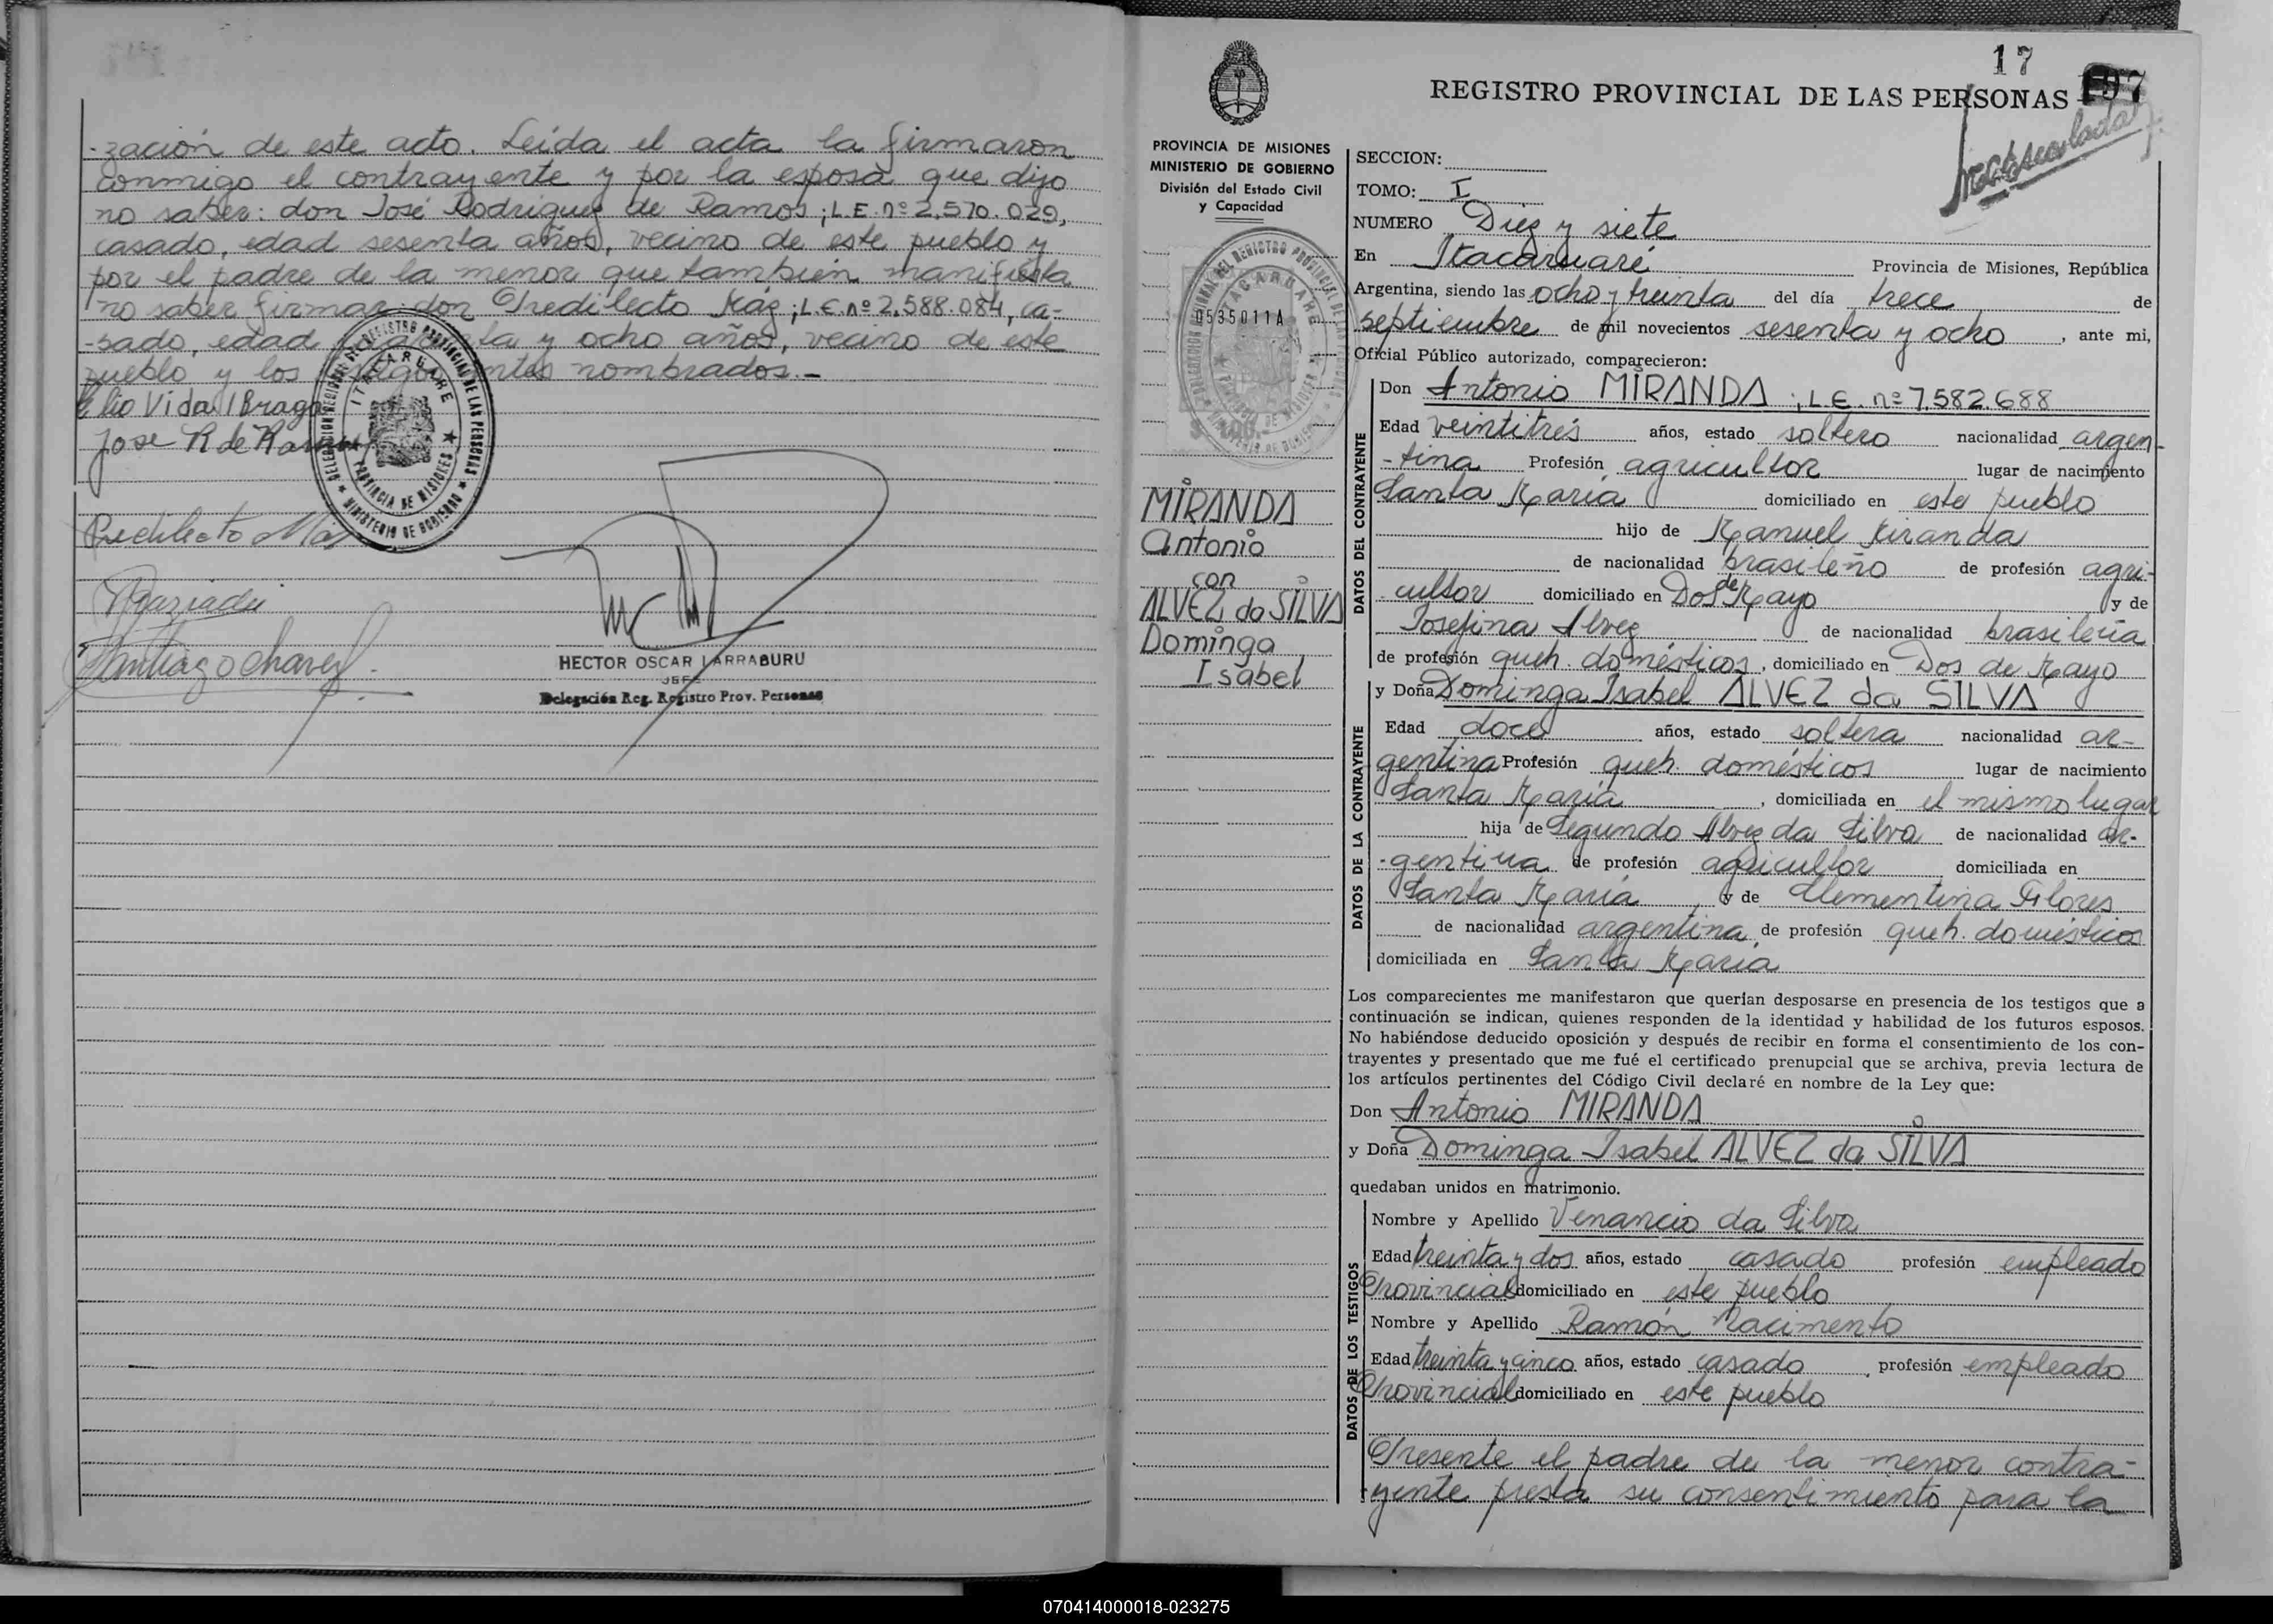 -zación de este acto. Leída el acta la firmaron
conmigo el contrayente y por la esposa que dijo
no saber: don José Rodriguez de Ramos; L.E. nº 2.570.029,
casado, edad sesenta años, vecino de este pueblo y
por el padre de la menor que también manifiesta
no saber firmar: don Predilecto Máz; L.E. nº 2.588.084, ca-
-sado, edad y ocho años, vecino de este
pueblo y los nombrados.-
Elio Vidal Braga
Jose R de Ramos
Predilecto
Santiago Chavez
DELEGACION REGIONAL DEL REGISTRO PROVINCIAL DE LAS PERSONAS
ITACARUARE
PROVINCIA DE MISIONES
MINISTERIO DE GOBIERNO
HECTOR OSCAR LARRABURU
JEFE
Delegación Reg. Registro Prov. Personas
17
REGISTRO PROVINCIAL DE LAS PERSONAS 197
PROVINCIA DE MISIONES
MINISTERIO DE GOBIERNO
División del Estado Civil
y Capacidad
0535011A
MIRANDA
Antonio
con
ALVEZ da SILVA
Dominga
Isabel
SECCION:
TOMO: I
NUMERO Diez y siete
En Itacaruaré Provincia de Misiones, República
Argentina, siendo las ocho y treinta del día trece de
septiembre de mil novecientos sesenta y ocho, ante mi,
Oficial Público autorizado, comparecieron:
DATOS DEL CONTRAYENTE
Don Antonio MIRANDA; L.E. nº 7.582.688
Edad veintitrés años, estado soltero nacionalidad argen-
-tina Profesión agricultor lugar de nacimiento
Santa María domiciliado en este pueblo
hijo de Manuel Miranda
de nacionalidad brasileño de profesión agri-
-cultor domiciliado en Dos de Mayo y de
Josefina Alvez de nacionalidad brasileña
de profesión queh. domésticos, domiciliado en Dos de Mayo
DATOS DE LA CONTRAYENTE
y Doña Dominga Isabel ALVEZ da SILVA
Edad doce años, estado soltera nacionalidad ar-
gentina Profesión queh. domésticos lugar de nacimiento
Santa María, domiciliada en el mismo lugar
hija de Segundo Alvez da Silva de nacionalidad ar-
-gentina de profesión agricultor domiciliada en
Santa María, y de Clementina Flores
de nacionalidad argentina, de profesión queh. domésticos
domiciliada en Santa María
Los comparecientes me manifestaron que querían desposarse en presencia de los testigos que a
continuación se indican, quienes responden de la identidad y habilidad de los futuros esposos.
No habiéndose deducido oposición y después de recibir en forma el consentimiento de los con-
trayentes y presentado que me fué el certificado prenupcial que se archiva, previa lectura de
los artículos pertinentes del Código Civil declaré en nombre de la Ley que:
Don Antonio MIRANDA
y Doña Dominga Isabel ALVEZ da SILVA
quedaban unidos en matrimonio.
DATOS DE LOS TESTIGOS
Nombre y Apellido Venancio da Silva
Edad treinta y dos años, estado casado profesión empleado
Provincial domiciliado en este pueblo
Nombre y Apellido Ramón Nacimento
Edad treinta y cinco años, estado casado, profesión empleado
Provincial domiciliado en este pueblo
Presente el padre de la menor contra-
-yente presta su consentimiento para la
070414000018-023275